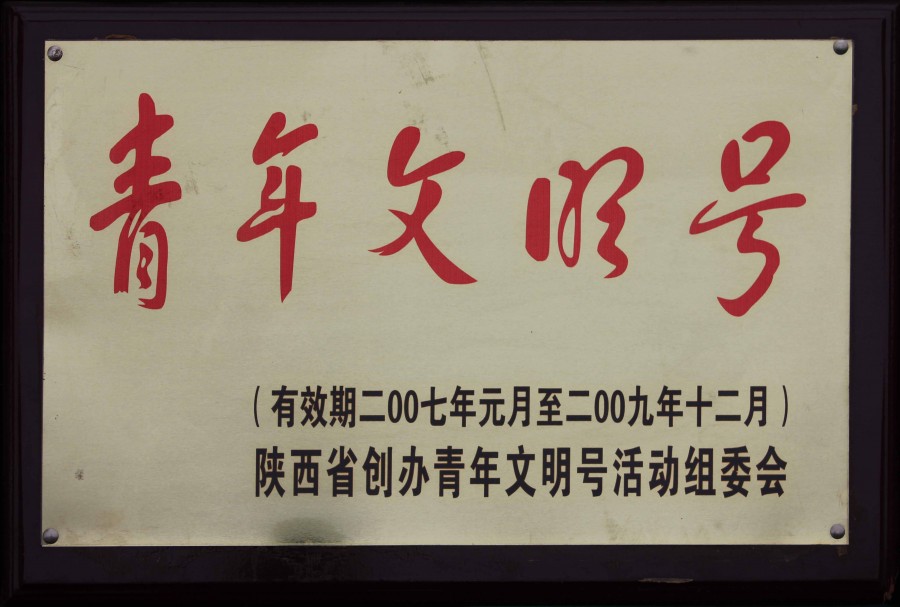 青年文明号
（有效期二00七年元月至二00九年十二月）
陕西省创办青年文明号活动组委会